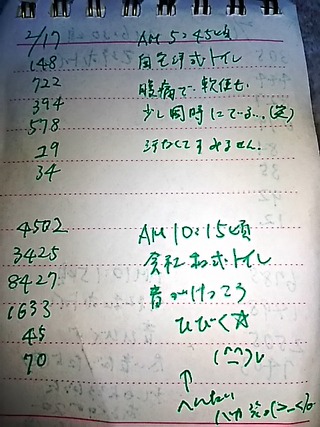 2/17 AM 5:45頃
148 自宅洋式トイレ
722 腹痛で、軟便も
394 少し同時にでる…(笑)
578 汚なくてすみません。
29
34
4502 AM 10:15頃
3425 会社和式トイレ
8427 音がけっこう
1633 ひびく☆
45 (^^)v
70 ↑
へんたい
バカ 笑 (>_<)